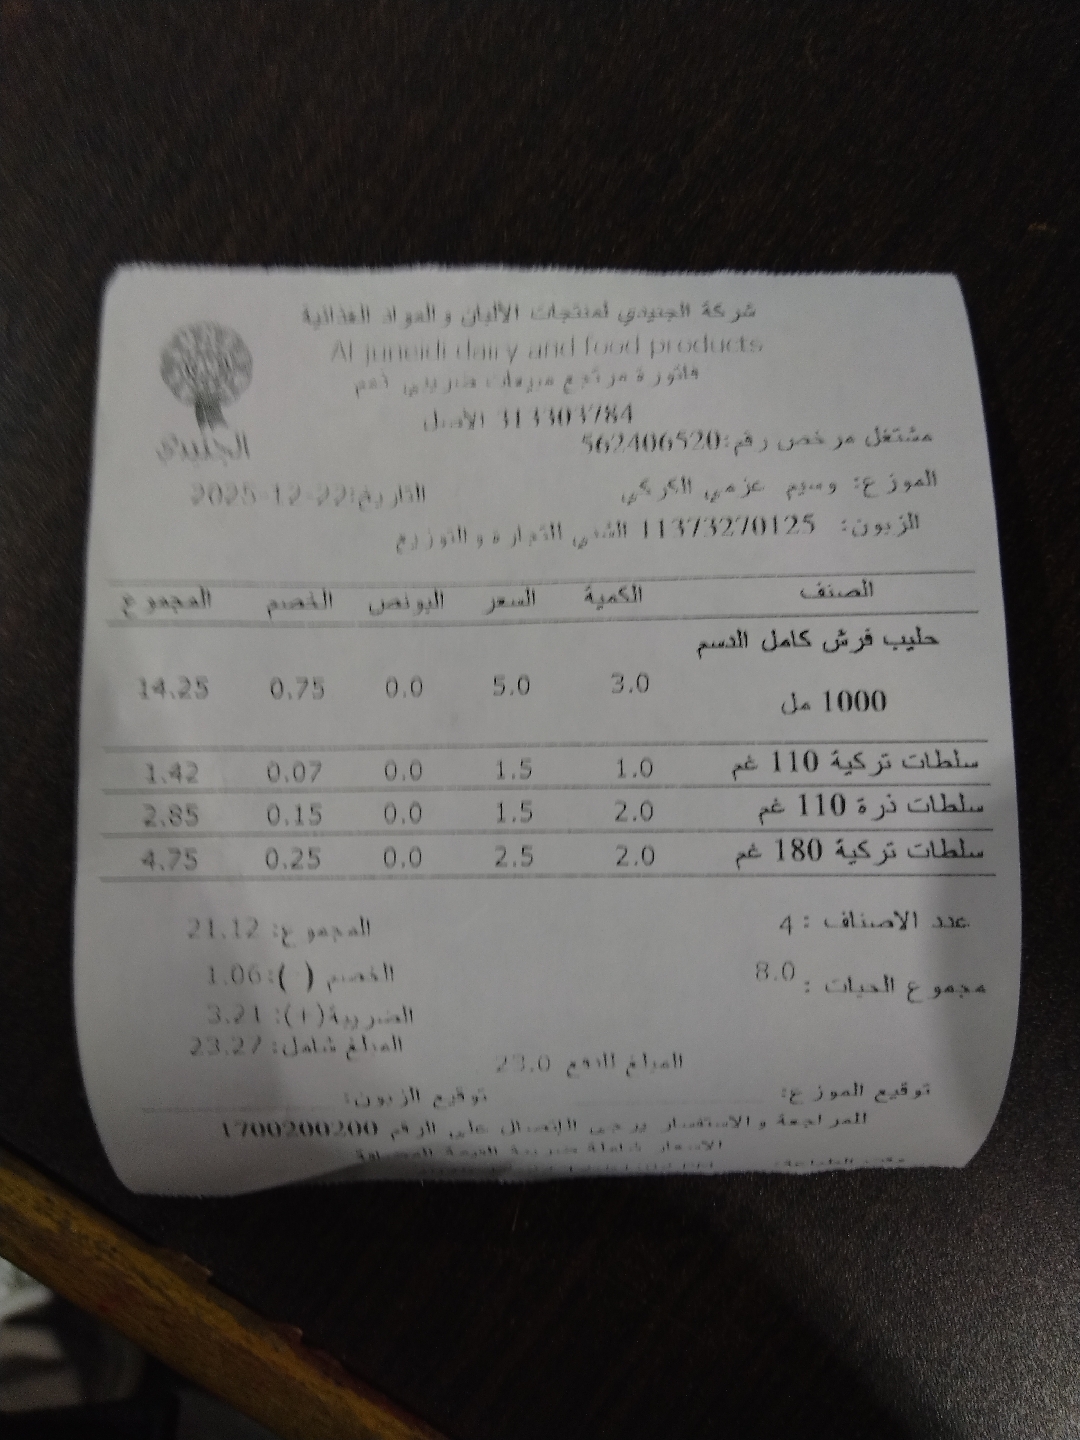 شركة الجنيدي لمنتجات الألبان و المواد الغذائية
Al juneidi dairy and food products
فاتورة مرتجع مبيعات ضريبي
313303784 الأصل
الجنيدي
مشتغل مرخص رقم:562406520
الموزع: وسيم عزمي الكركي التاريخ:2025-12-22
الزبون: 11373270125 للتجارة و التوزيع
الصنف الكمية السعر البونص الخصم المجموع
حليب فرش كامل الدسم
1000 مل 3.0 5.0 0.0 0.75 14.25
سلطات تركية 110 غم 1.0 1.5 0.0 0.07 1.42
سلطات ذرة 110 غم 2.0 1.5 0.0 0.15 2.85
سلطات تركية 180 غم 2.0 2.5 0.0 0.25 4.75
عدد الاصناف : 4 المجموع: 21.12
مجموع الحبات : 8.0 الخصم ( ):1.06
الضريبة(+): 3.21
المبلغ شامل: 23.27
المبلغ للدفع 23.0
توقيع الموزع: توقيع الزبون:
للمراجعة و الاستفسار يرجى الاتصال على الرقم 1700200200
الاسعار شاملة ضريبة القيمة المضافة